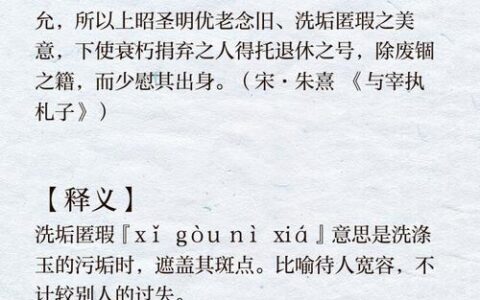 允，所以上昭圣明优老念旧、洗垢匿瑕之美
意，下使衰朽捐弃之人得托退休之号，除废锢
之籍，而少慰其出身。（宋·朱熹 《与宰执
札子》）
【释义】
洗垢匿瑕『xǐ gòu nì xiá』意思是洗涤
玉的污垢时，遮盖其斑点。比喻待人宽容，不
计较别人的过失。